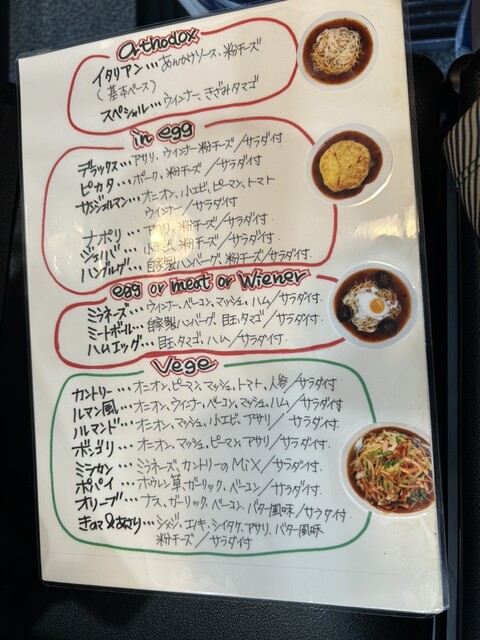 Orthodox
イタリアン…あんかけソース、粉チーズ
(基本ベース)
スペシャル…ウインナー、きざみタマゴ
in egg
デラックス…アサリ、ウインナー粉チーズ/サラダ付
ピカタ…ポーク、粉チーズ/サラダ付
サンジェルマン…オニオン、小エビ、ピーマン、トマト
ウインナー/サラダ付
ナポリ…アサリ、粉チーズ/サラダ付
ジェノバ…小エビ、粉チーズ/サラダ付
ハンブルグ…自家製ハンバーグ、粉チーズ/サラダ付.
egg or meat or Wiener
ミラネーズ…ウインナー、ベーコン、マッシュ、ハム/サラダ付.
ミートボール…自家製ハンバーグ、目玉、タマゴ/サラダ付.
ハムエッグ…目玉、タマゴ、ハム/サラダ付.
Vege
カントリー…オニオン、ピーマン、マッシュ、トマト、人参/サラダ付
ルマン風…オニオン、ウインナー、ベーコン、マッシュ、ハム/サラダ付.
ハルマンド…オニオン、マッシュ、小エビ、アサリ/サラダ付.
ボンゴリ…オニオン、マッシュ、ピーマン、アサリ/サラダ付.
ミラカン…ミラネーズ、カントリーのMiX/サラダ付.
ポパイ…ホウレン草、ガーリック、ベーコン/サラダ付.
オリーブ…ナス、ガーリック、ベーコン、バター風味/サラダ付.
きのこ&あさり…シメジ、エノキ、シイタケ、アサリ、バター風味
粉チーズ/サラダ付